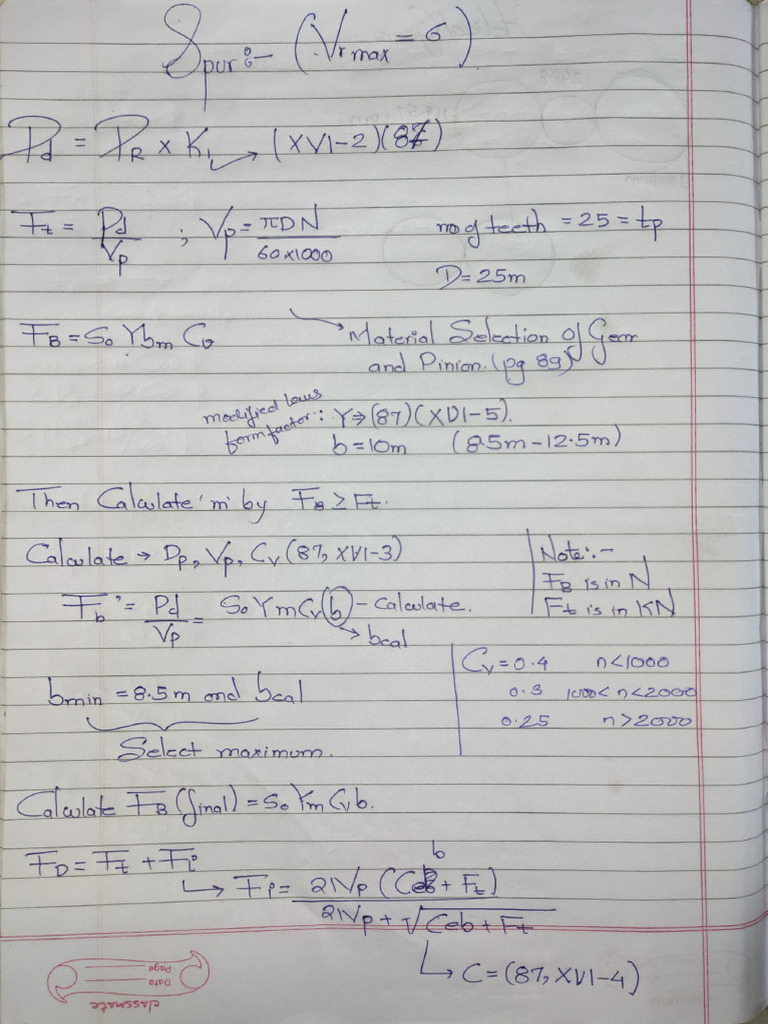 Spur :- (Vr max = 6)
Pd = PR × K1 → (XVI-2)(87)
Ft = Pd / Vp ; Vp = πDN / 60×1000
no of teeth = 25 = tp
D = 25m
FB = So Y b m Cv
→ Material Selection of Gear
and Pinion. (pg 89)
modified lewis form factor: Y ⇒ (87)(XVI-5).
b = 10m (8.5m - 12.5m)
Then Calculate 'm' by FB ≥ Ft.
Calculate → Dp, Vp, Cv (87, XVI-3)
Note:-
FB is in N
Ft is in KN
Fb' = Pd / Vp = So Y m Cv b - Calculate.
→ bcal
Cv = 0.4 n<1000
0.3 1000<n<2000
0.25 n>2000
bmin = 8.5m and bcal
Select maximum.
Calculate FB (final) = So Y m Cv b.
FD = Ft + Fi
b
→ Fi = 21Vp (Ceb + Ft) / 21Vp + √Ceb + Ft
→ C = (87, XVI-4)
classmate
Date
Page